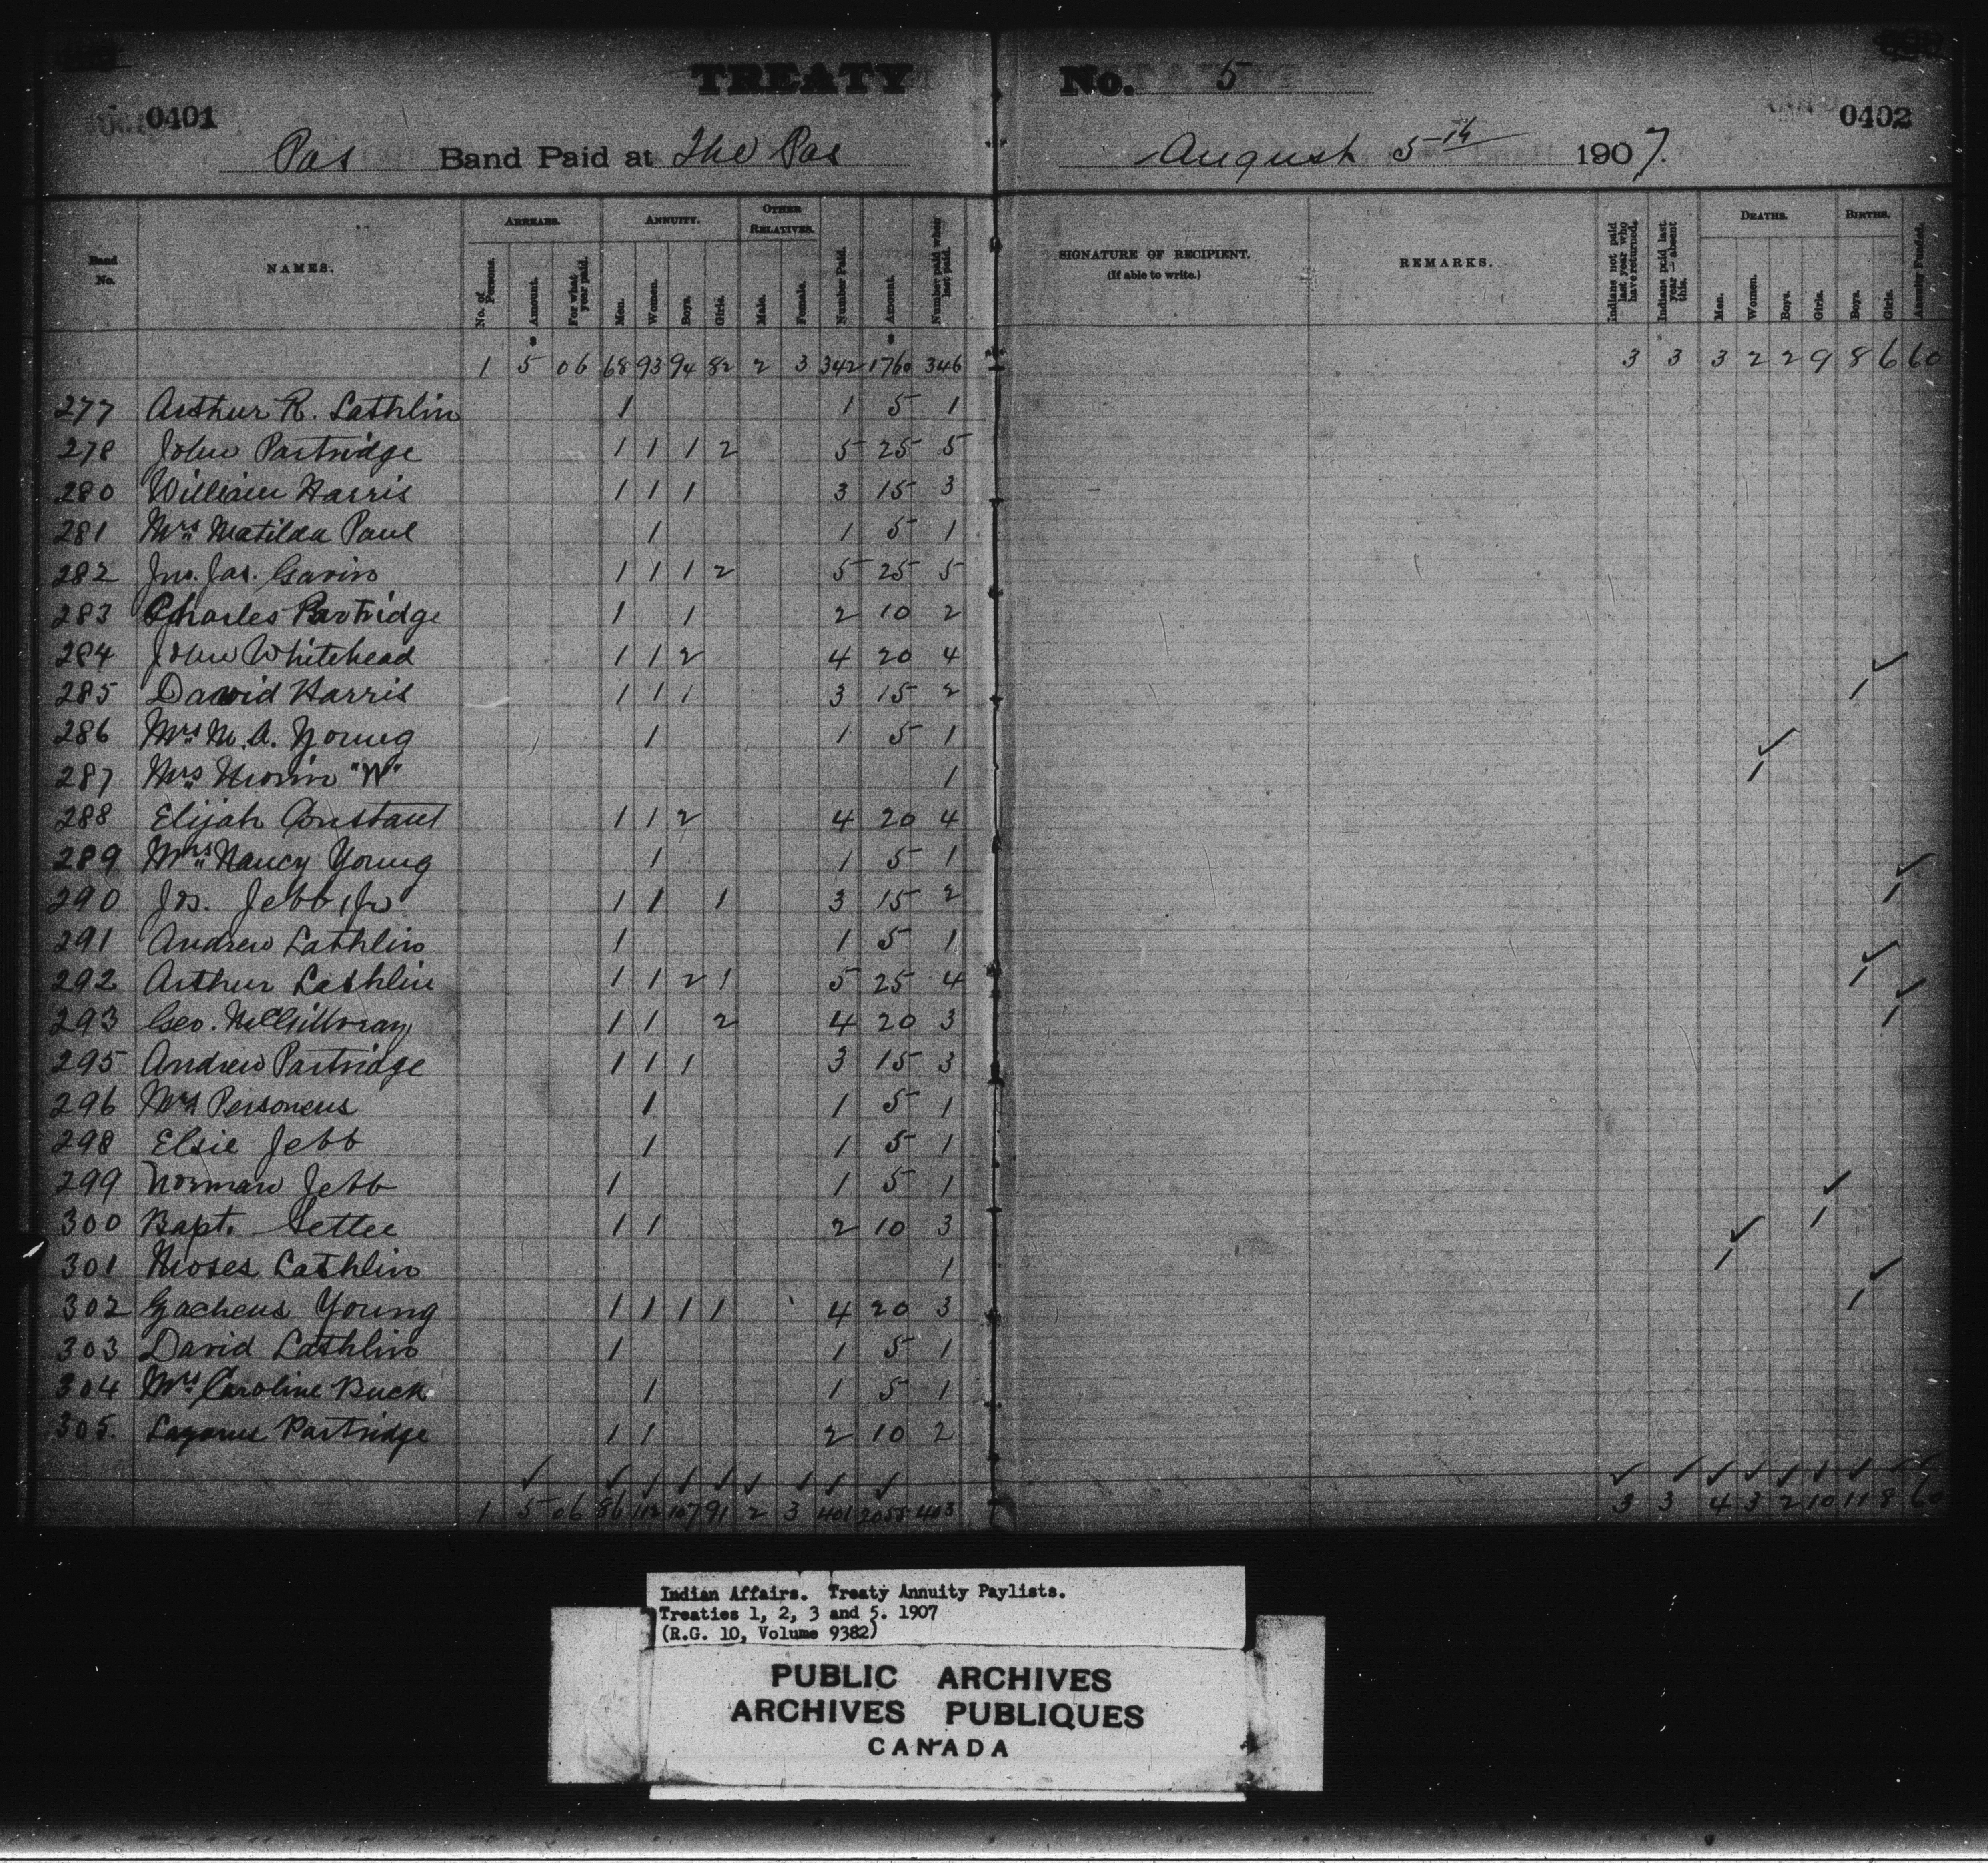 TREATY No. 5
0401
0402
Pas Band Paid at The Pas August 5th 1907.
Band No.
NAMES.
ARREARS.
No. of Persons.
Amount.
For what year paid.
ANNUITY.
Men.
Women.
Boys.
Girls.
OTHER RELATIVES.
Male.
Female.
Number Paid.
Amount.
Number paid when last paid.
SIGNATURE OF RECIPIENT.
(If able to write.)
REMARKS.
Indians not paid last year who have returned.
Indians paid last year — absent this.
DEATHS.
Men.
Women.
Boys.
Girls.
BIRTHS.
Boys.
Girls.
Annuity Funded.
$ $
1 5 06 68 93 94 82 2 3 342 1760 346 3 3 3 2 2 9 8 6 60
277 Arthur R. Lathlin 1 1 5 1
278 John Partridge 1 1 1 2 5 25 5
280 William Harris 1 1 1 3 15 3
281 Mrs Matilda Paul 1 1 5 1
282 Jno. Jas. Gavin 1 1 1 2 5 25 5
283 Charles Partridge 1 1 2 10 2
284 John Whitehead 1 1 2 4 20 4
285 David Harris 1 1 1 3 15 2 1 ✓
286 Mrs M. A. Young 1 1 5 1
287 Mrs Morin "W" 1 1 ✓
288 Elijah Constant 1 1 2 4 20 4
289 Mrs Nancy Young 1 1 5 1
290 Jos. Jebb, Jr 1 1 1 3 15 2 1 ✓
291 Andrew Lathlin 1 1 5 1
292 Arthur Lathlin 1 1 2 1 5 25 4 1 ✓
293 Geo. McGillvray 1 1 2 4 20 3 1 ✓
295 Andrew Partridge 1 1 1 3 15 3
296 Mrs Personeus 1 1 5 1
298 Elsie Jebb 1 1 5 1
299 Norman Jebb 1 1 5 1
300 Bapt. Settee 1 1 2 10 3 1 ✓
301 Moses Lathlin 1 1 ✓
302 Zacheus Young 1 1 1 1 4 20 3 1 ✓
303 David Lathlin 1 1 5 1
304 Mrs Caroline Buck 1 1 5 1
305. Lazarus Partridge 1 1 2 10 2
1 5 06 86 112 107 91 2 3 401 2055 403 3 3 4 3 2 10 11 8 60
Indian Affairs. Treaty Annuity Paylists.
Treaties 1, 2, 3 and 5. 1907
(R.G. 10, Volume 9382)
PUBLIC ARCHIVES
ARCHIVES PUBLIQUES
CANADA